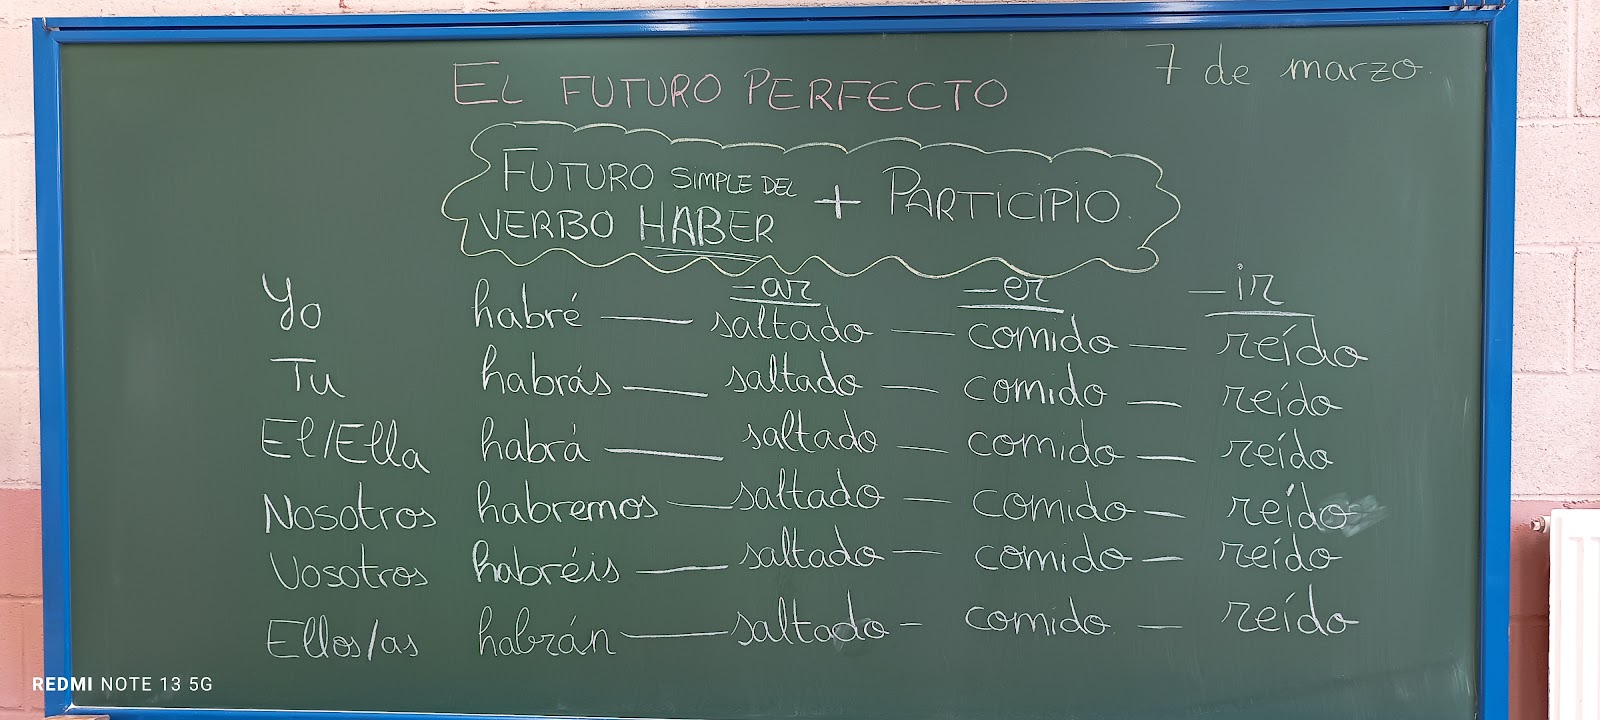 7 de marzo.
EL FUTURO PERFECTO
FUTURO SIMPLE DEL
VERBO HABER + PARTICIPIO.
-ar -er -ir
Yo habré — saltado — comido — reído
Tu habrás — saltado — comido — reído
El/Ella habrá — saltado — comido — reído
Nosotros habremos — saltado — comido — reído
Vosotros habréis — saltado — comido — reído
Ellos/as habrán — saltado — comido — reído
REDMI NOTE 13 5G